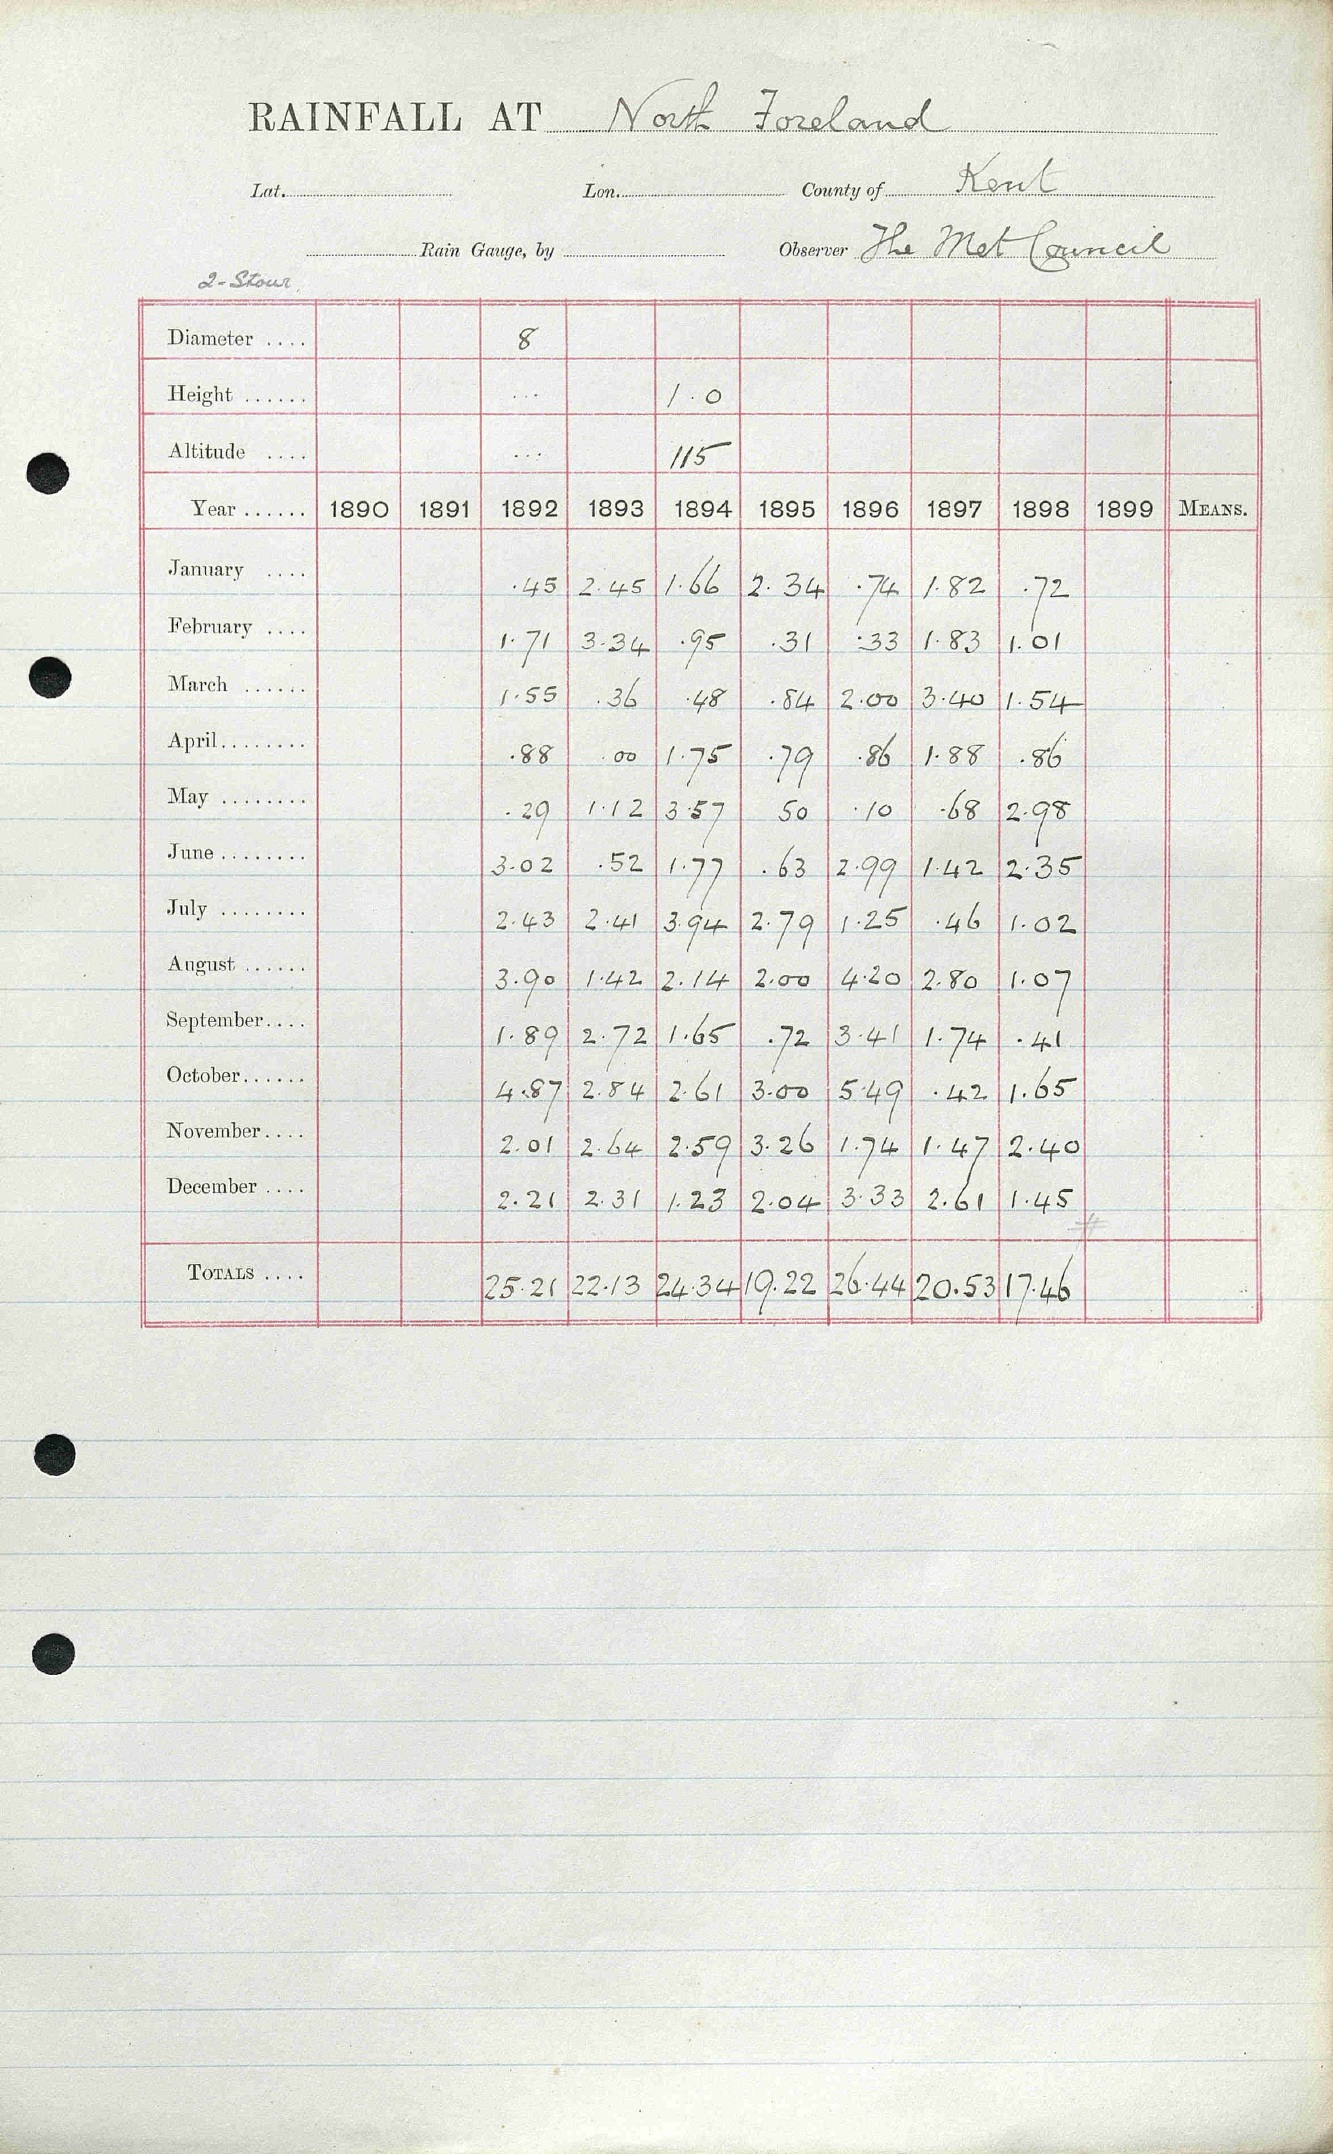 RAINFALL AT North Foreland
Lat. Lon. County of Kent
Rain Gauge, by Observer The Met Council
2-Stour.
Diameter .... 8
Height ...... ... 1.0
Altitude .... ... 115
Year ...... 1890 1891 1892 1893 1894 1895 1896 1897 1898 1899 MEANS.
January .... .45 2.45 1.66 2.34 .74 1.82 .72
February .... 1.71 3.34 .95 .31 .33 1.83 1.01
March ...... 1.55 .36 .48 .84 2.00 3.40 1.54
April ........ .88 .00 1.75 .79 .86 1.88 .86
May ........ .29 1.12 3.57 50 .10 .68 2.98
June ........ 3.02 .52 1.77 .63 2.99 1.42 2.35
July ........ 2.43 2.41 3.94 2.79 1.25 .46 1.02
August ...... 3.90 1.42 2.14 2.00 4.20 2.80 1.07
September.... 1.89 2.72 1.65 .72 3.41 1.74 .41
October...... 4.87 2.84 2.61 3.00 5.49 .42 1.65
November.... 2.01 2.64 2.59 3.26 1.74 1.47 2.40
December .... 2.21 2.31 1.23 2.04 3.33 2.61 1.45
#
TOTALS .... 25.21 22.13 24.34 19.22 26.44 20.53 17.46